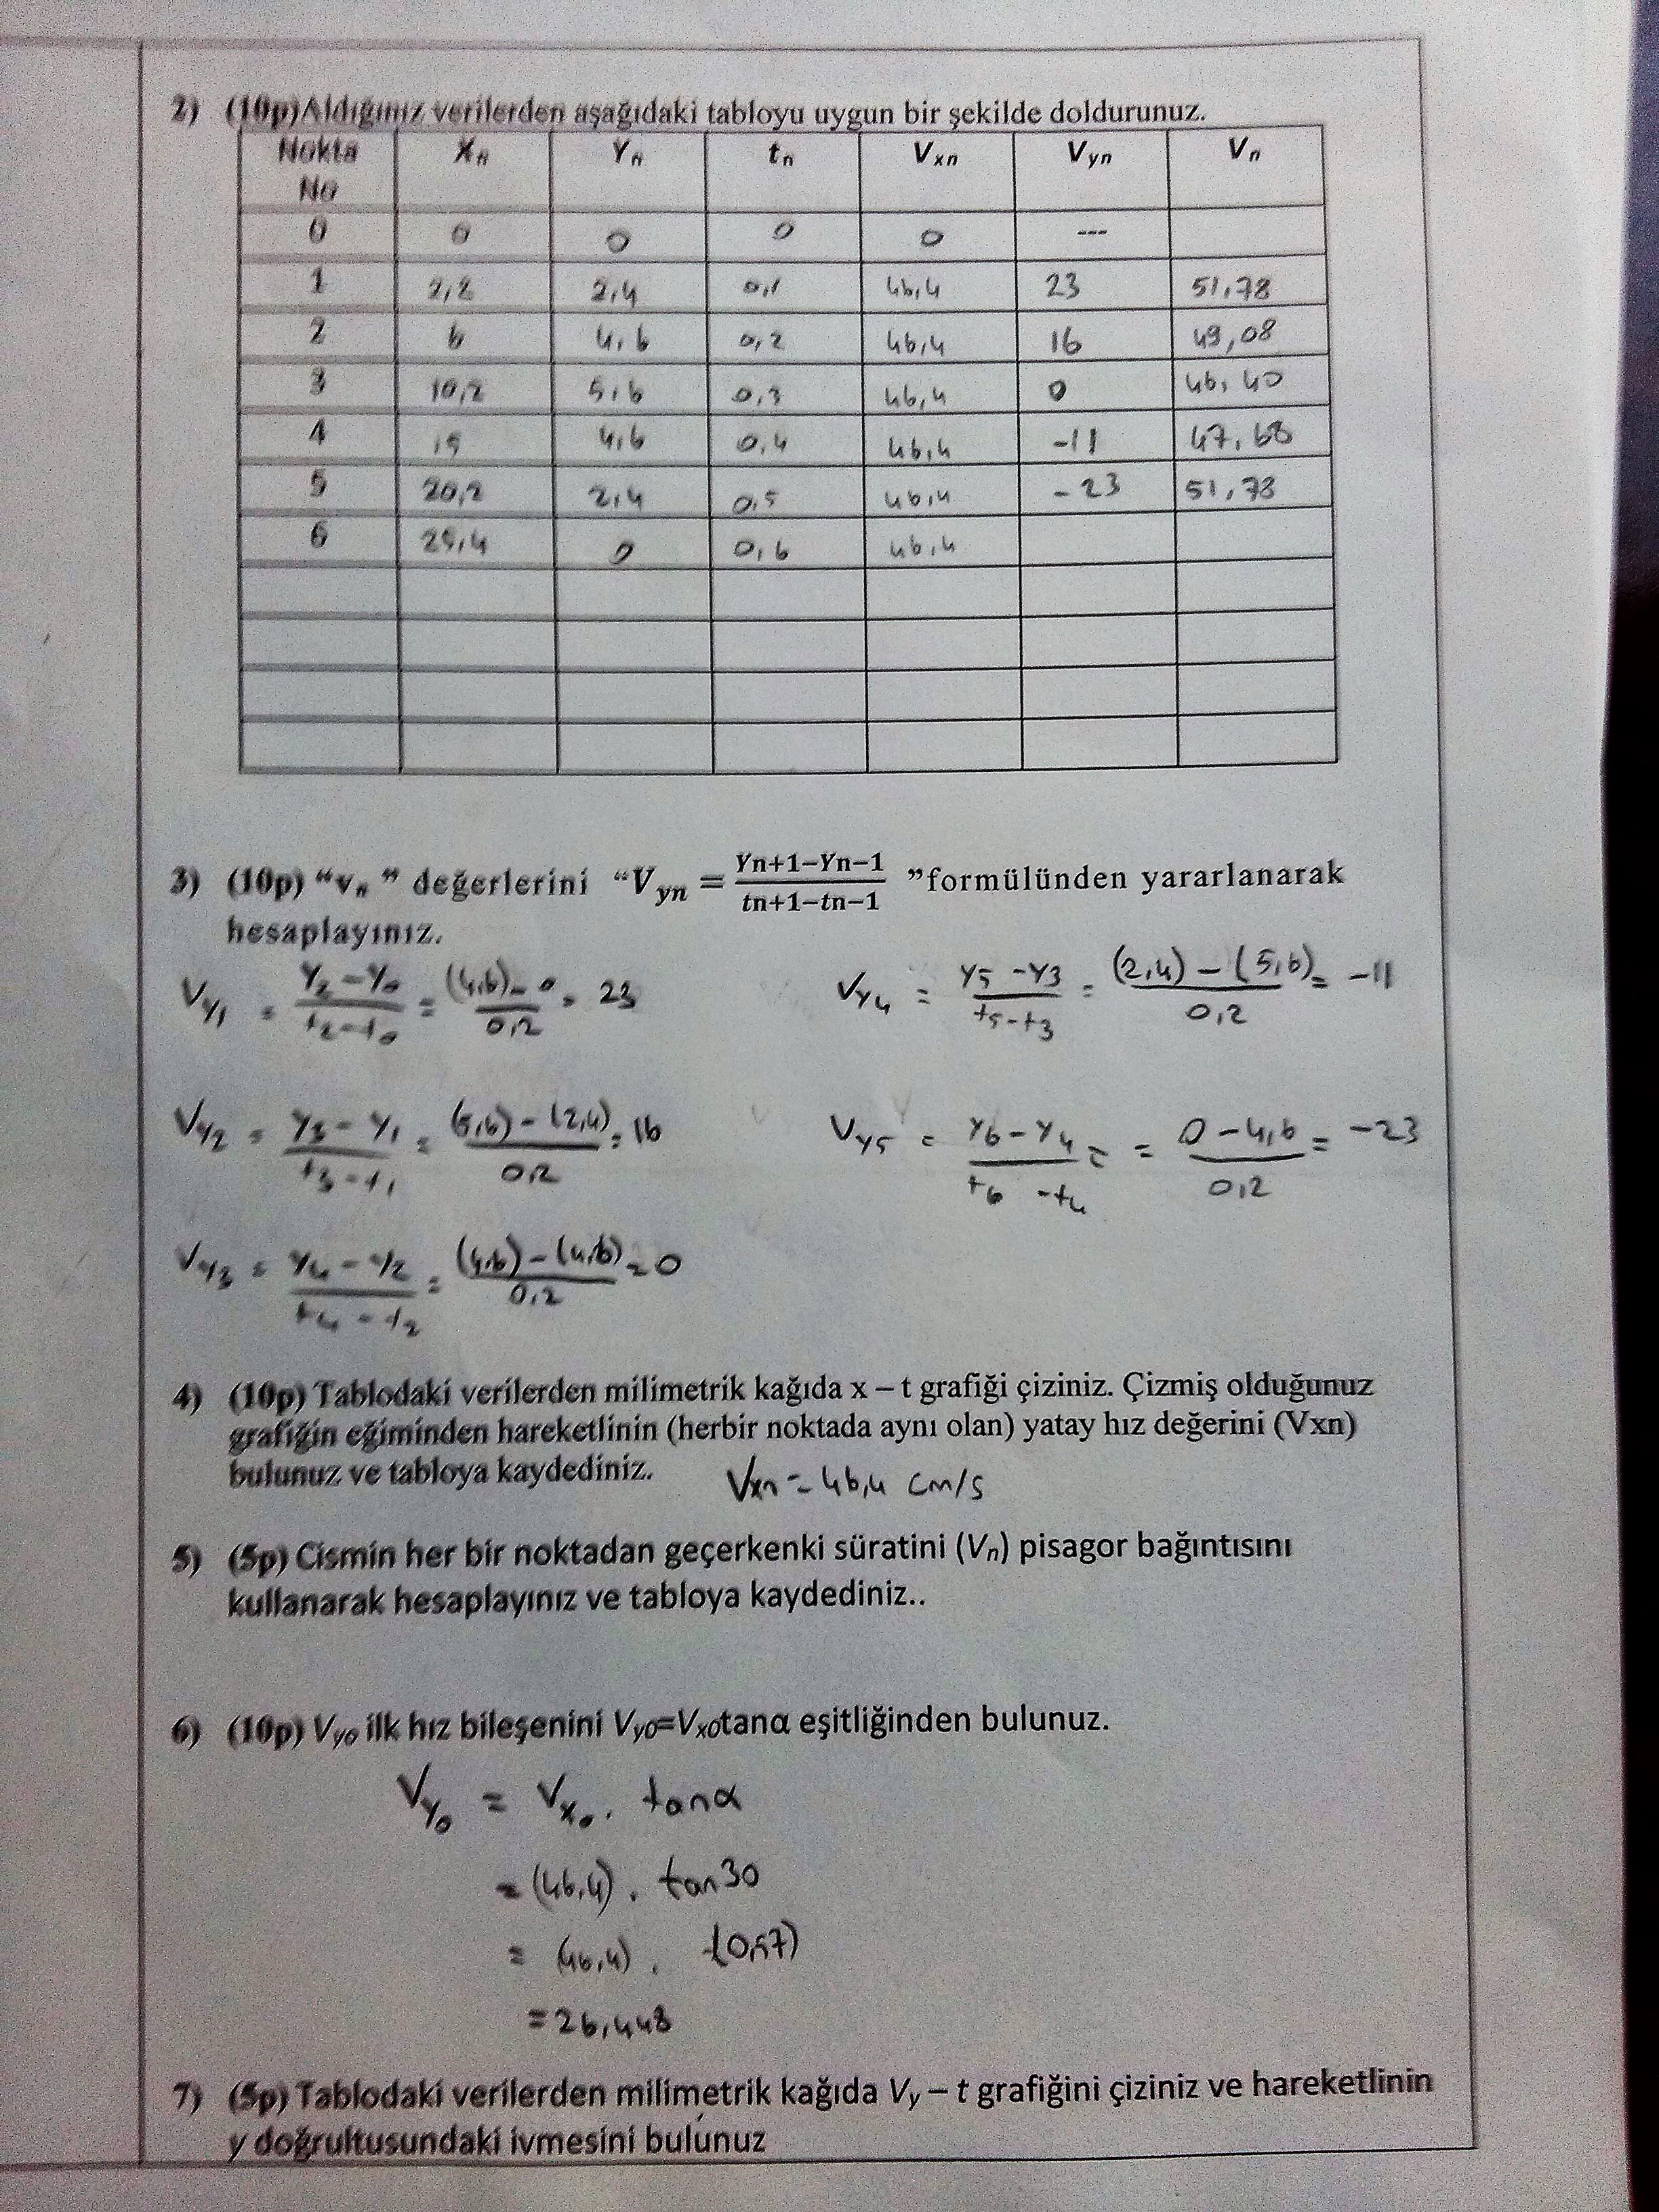 2) (10p)Aldığınız verilerden aşağıdaki tabloyu uygun bir şekilde doldurunuz.
Nokta No Xn Yn tn Vxn Vyn Vn
0 0 0 0 0 ---
1 2,2 2,4 0,1 46,4 23 51,78
2 6 4,6 0,2 46,4 16 49,08
3 10,2 5,6 0,3 46,4 0 46,40
4 15 4,6 0,4 46,4 -11 47,68
5 20,2 2,4 0,5 46,4 -23 51,78
6 25,4 0 0,6 46,4
3) (10p) “vn ” değerlerini “Vyn = Yn+1−Yn−1 / tn+1−tn−1 ”formülünden yararlanarak
hesaplayınız.
Vy1 = Y2-Y0 / t2-t0 = (4,6)-0 / 0,2 = 23
Vy4 = Y5-Y3 / t5-t3 = (2,4)-(5,6) / 0,2 = -11
Vy2 = Y3-Y1 / t3-t1 = (5,6)-(2,4) / 0,2 = 16
Vy5 = Y6-Y4 / t6-t4 = = 0-4,6 / 0,2 = -23
Vy3 = Y4-Y2 / t4-t2 = (4,6)-(4,6) / 0,2 = 0
4) (10p) Tablodaki verilerden milimetrik kağıda x – t grafiği çiziniz. Çizmiş olduğunuz
grafiğin eğiminden hareketlinin (herbir noktada aynı olan) yatay hız değerini (Vxn)
bulunuz ve tabloya kaydediniz. Vxn = 46,4 cm/s
5) (5p) Cismin her bir noktadan geçerkenki süratini (Vn) pisagor bağıntısını
kullanarak hesaplayınız ve tabloya kaydediniz..
6) (10p) Vyo ilk hız bileşenini Vyo=Vxotanα eşitliğinden bulunuz.
Vy0 = Vx0 . tanα
= (46,4) . tan30
= (46,4) . (0,57)
= 26,448
7) (5p) Tablodaki verilerden milimetrik kağıda Vy – t grafiğini çiziniz ve hareketlinin
y doğrultusundaki ivmesini bulunuz